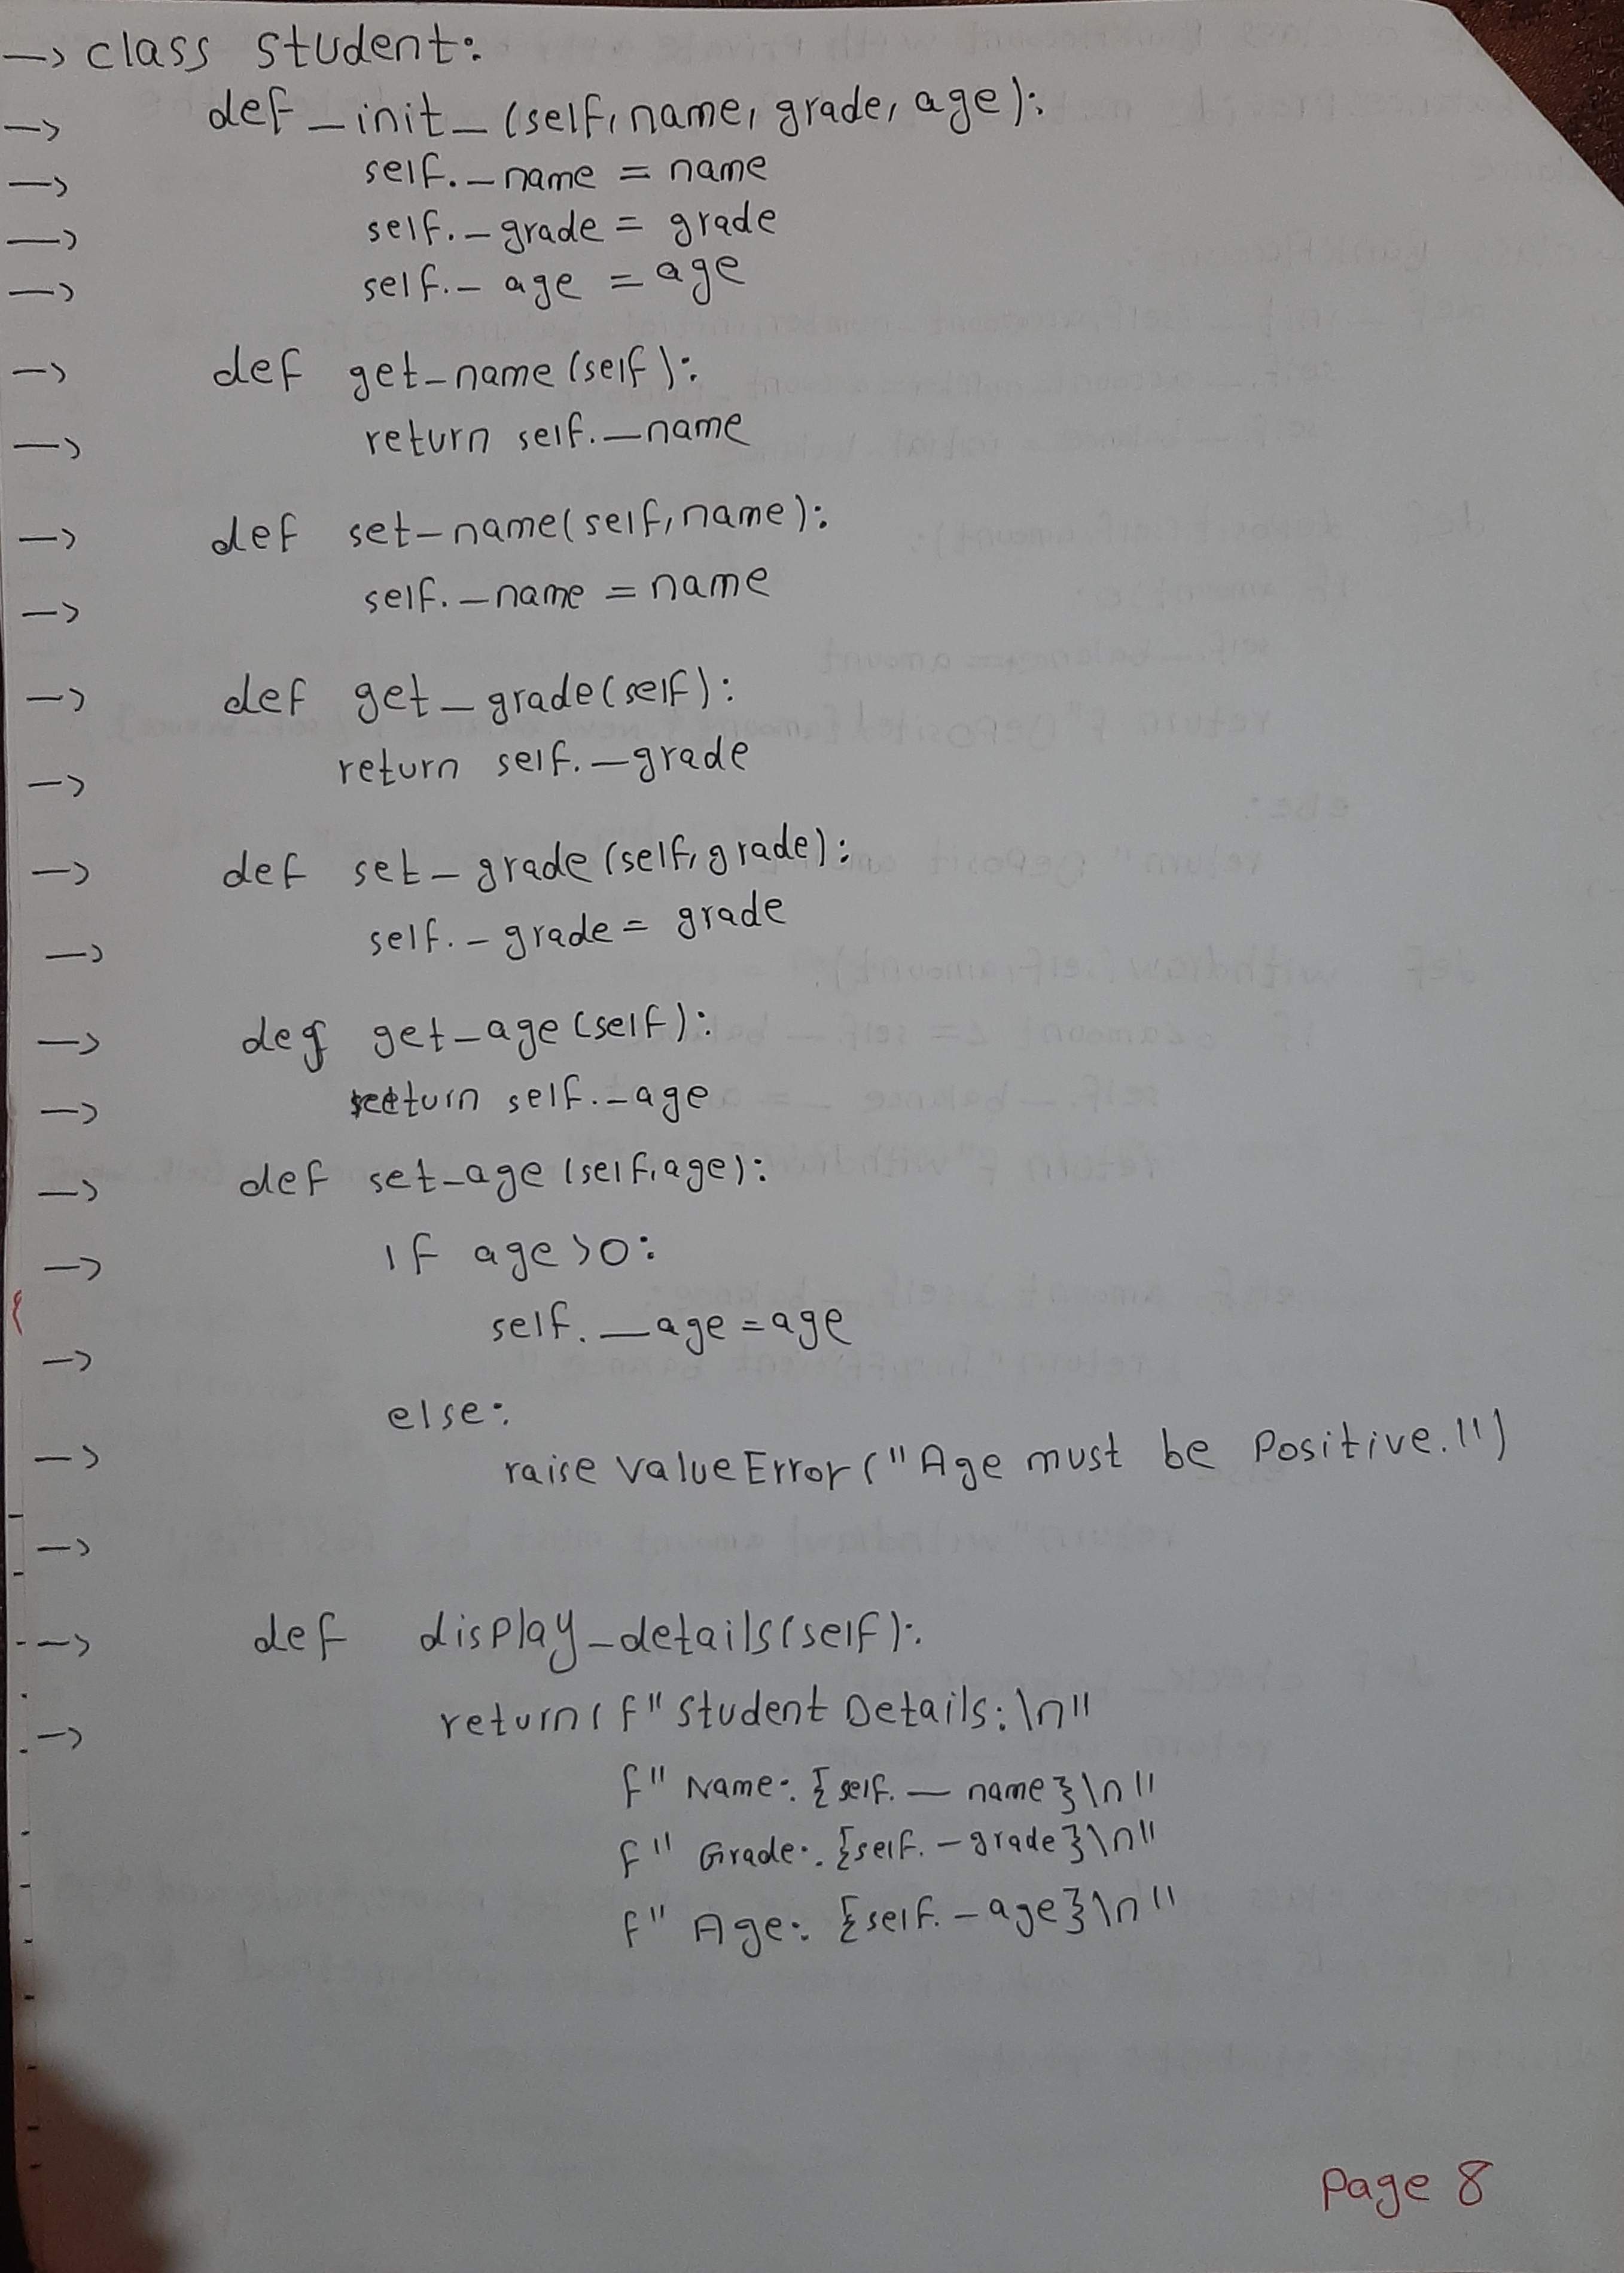 → class student:
→ def _init_ (self, name, grade, age):
→ self._name = name
→ self._grade = grade
→ self._age = age
→ def get_name (self):
→ return self._name
→ def set_name(self, name):
→ self._name = name
→ def get_grade(self):
→ return self._grade
→ def set_grade (self, grade):
→ self._grade = grade
→ def get_age (self):
→ return self._age
→ def set_age (self, age):
→ if age >0:
→ self._age = age
else:
→ raise valueError ("Age must be Positive.")
→
→ def display_details(self):
→ return( f" Student Details: \n"
f" Name: {self._name}\n"
f" Grade: {self._grade}\n"
f" Age: {self._age}\n"
Page 8